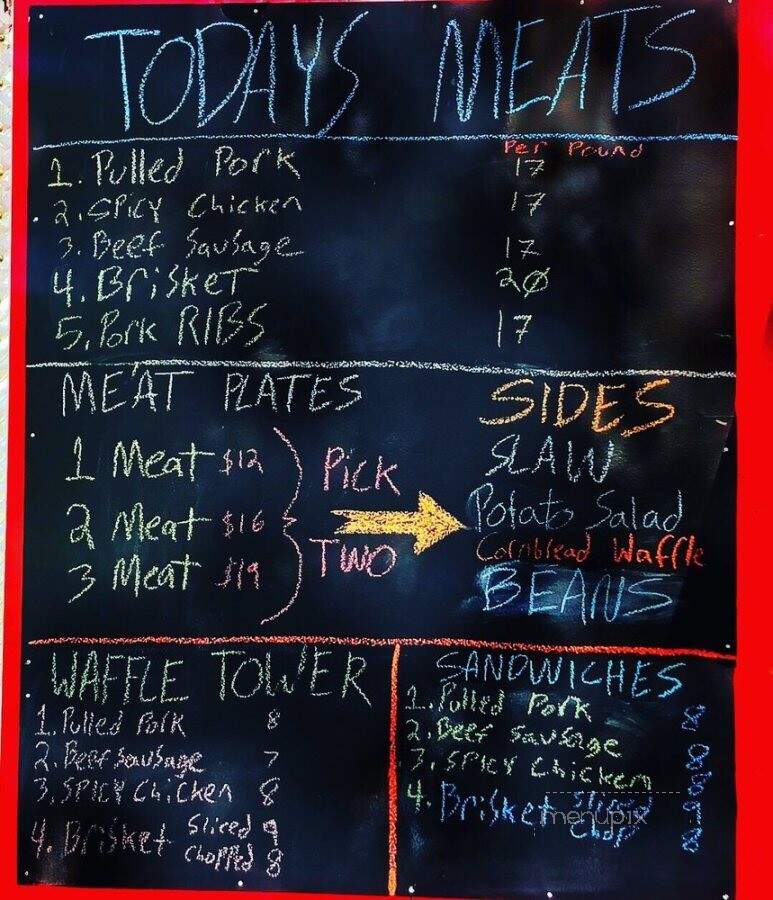 TODAYS MEATS
Per Pound
1. Pulled Pork 17
2. SPICY Chicken 17
3. Beef Sausage 17
4. Brisket 20
5. Pork RIBS 17
MEAT PLATES
1 Meat $12
2 Meat $16
3 Meat $19
PICK
TWO
SIDES
SLAW
Potato Salad
Cornbread Waffle
BEANS
WAFFLE TOWER
1. Pulled Pork 8
2. Beef Sausage 7
3. SPICY Chicken 8
4. Brisket Sliced 9
Chopped 8
SANDWICHES
1. Pulled Pork 8
2. Beef Sausage 8
3. SPICY Chicken 8
4. Brisket Sliced 9
Chop 8
menupix